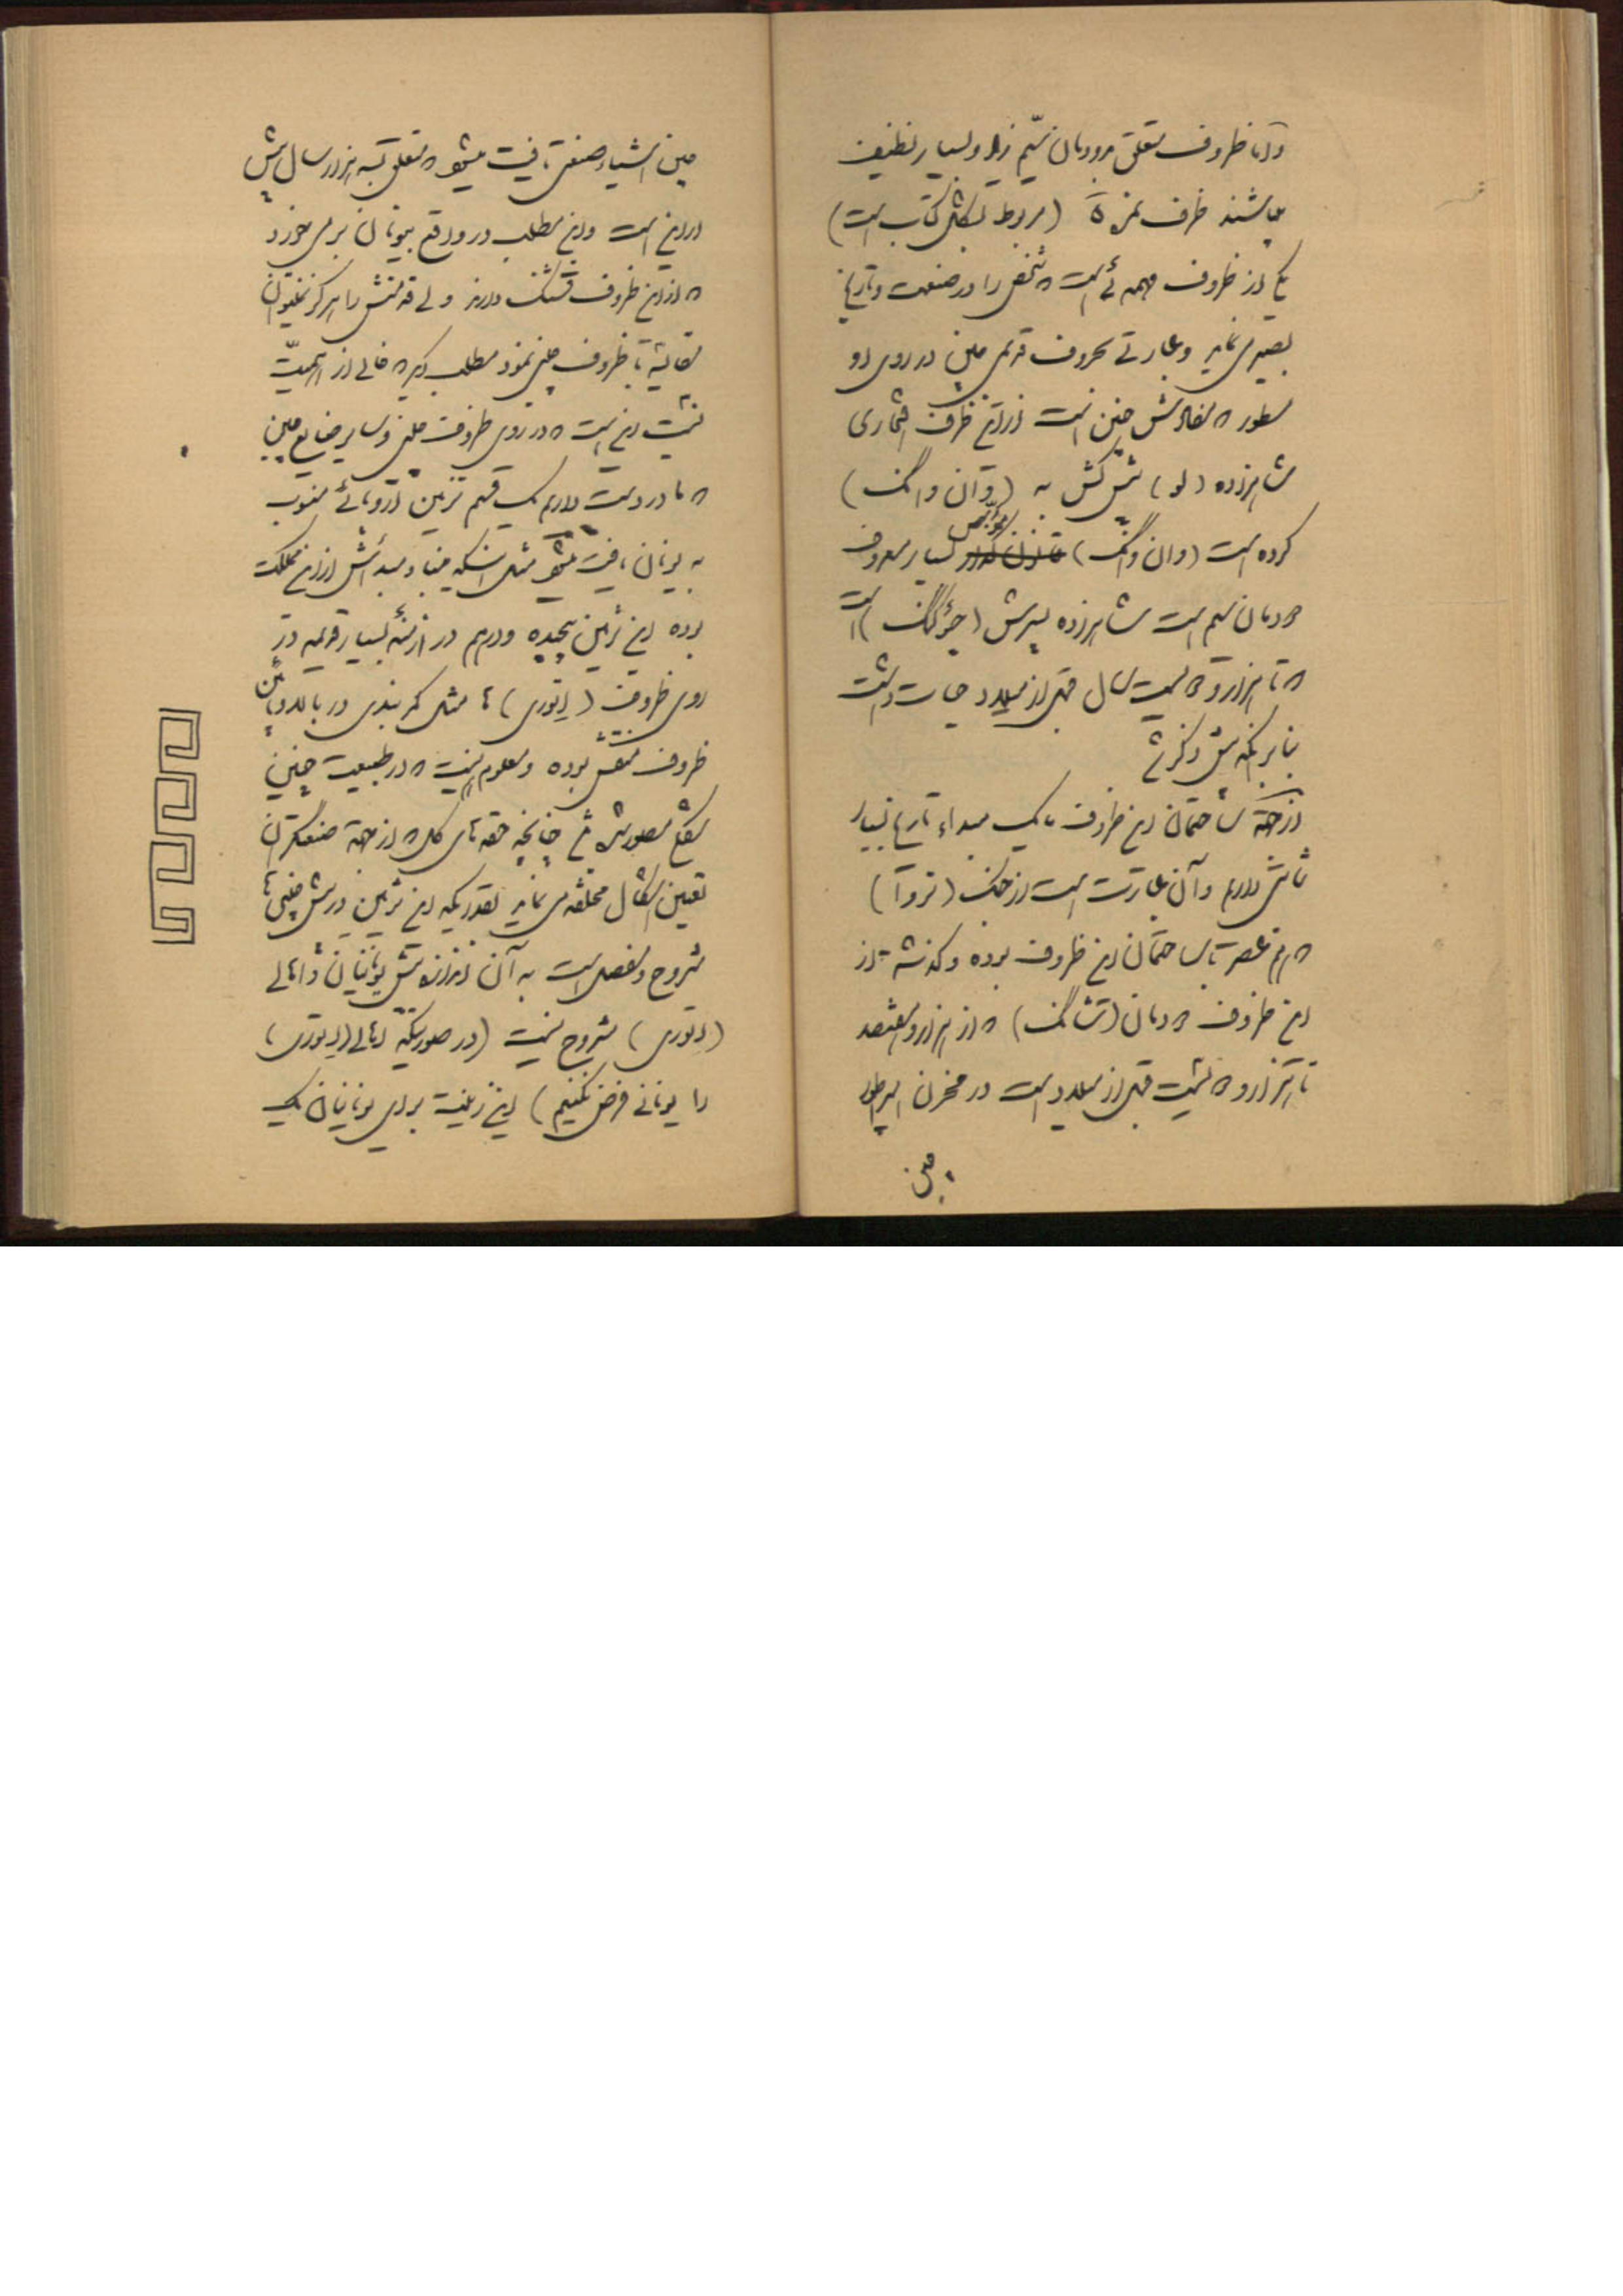 و آنها ظروف متعلق بدودمان سیم زیاد و بسیار نظیف
میباشند ظرف نمره ۵ (مربوط بشکل کتاب است)
یکی از ظروف مهمه ئی است که شخص را در صنعت و تاریخ
بصیر می نماید و عبارتی بحروف قدیمی چین در روی او
مسطور که مفادش چنین است از این ظرف افتخاری
شاهزاده (لو) پیش کش به (وان وانگ)
کرده است (وان وانگ) مؤسس بسیار معروف
دودمان سیم است شاهزاده پسرش (جؤکنگ) است
که تا هزار و دویست سال قبل از میلاد حیات داشت
بنا بر آنکه پیش ذکر شد
از جهة ساختمان این ظروف ما یک مبداء تاریخ بسیار
ثابتی داریم و آن عبارت است از جنگ (تروآ)
که هم عصر با ساختمان این ظروف بوده و گذشته از
این ظروف دودمان (تشانگ) که از هزار و هفتصد
تا هزار و دویست قبل از میلاد است در مخزن امپراطور
چین
چین اشیاء صنعتی یافت میشود که متعلق به هزار سال پیش
از این است و این مطلب در واقع بیونان بر می خورد
که از این ظروف قشنگ دارند ولی قدمتش را هرگز نمیتوان
مقایسه با ظروف چینی نمود مطلب دیگر که خالی از اهمیت
نیست این است که در روی ظروف چینی و سایر صنایع چین
که ما در دست داریم یک قسم تزیین اروپائی منسوب
به یونان یافت میشود مثل اینکه مبناء و مبدأش از این مملکت
بوده این تزیین پیچیده و درهم در ازمنه بسیار قدیمه در
روی ظروف (اتوری) ها مثل کمربندی در بالا و پائین
ظروف منقش بوده و معلوم نیست که در طبیعت چنین
شکلی مصور شده باشد چنانچه حقه های گل که از جهة صنعتگران
تعیین اشکال مختلفه می نماید بقدریکه این تزیین در پیش چینی ها
مشروح و مفصل است به آن اندازه پیش یونانیان و اهالی
(اتوری) مشروح نیست (در صورتیکه اهالی (اتوری)
را یونانی فرض نکنیم) این زینت برای یونانیان یک